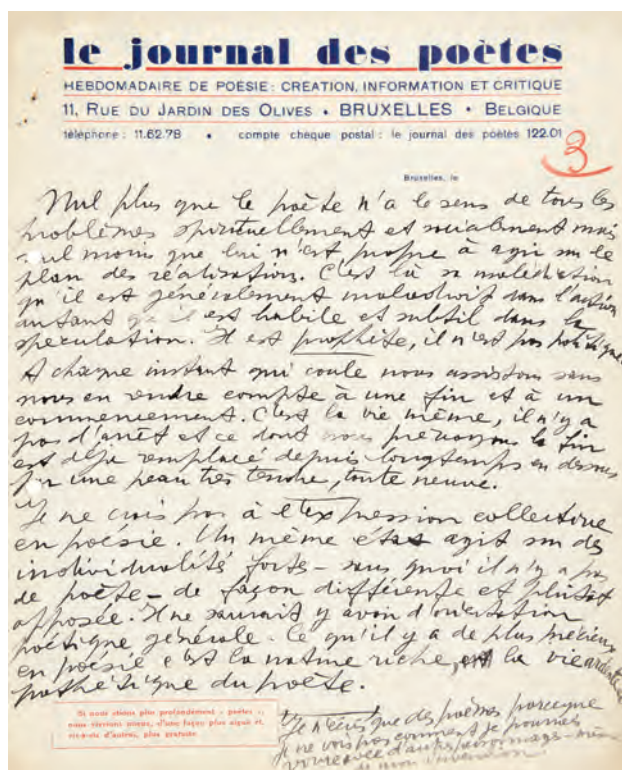 le journal des poètes
HEBDOMADAIRE DE POÉSIE: CRÉATION, INFORMATION ET CRITIQUE
11, RUE DU JARDIN DES OLIVES • BRUXELLES • BELGIQUE
téléphone: 11.62.78 • compte chèque postal: le journal des poètes 122.01
3
Bruxelles, le
Nul plus que le poète n'a le sens de tous les
problèmes spirituellement et socialement mais
nul moins que lui n'est propre à agir sur le
plan des réalisations. C'est là sa malédiction
qu'il est généralement maladroit dans l'action
autant qu'il est habile et subtil dans la
speculation. Il est prophète, il n'est pas politique
A chaque instant qui coule nous assistons sans
nous en rendre compte à une fin et à un
commencement. C'est la vie même, il n'y a
pas d'arrêt et ce dont nous prévoyons la fin
est déjà remplacé depuis longtemps en dessous
par une peau très tendre, toute neuve.
Je ne crois pas à l'expression collective
en poésie. Un même état agit sur des
individualités fortes - sans quoi il n'y a pas
de poète - de façon différente et plutôt
opposée. Il ne saurait y avoir d'orientation
poétique générale. Ce qu'il y a de plus précieux
en poésie c'est la nature riche, la vie ardente
pathétique du poète.
Si nous étions plus profondément « poètes »,
nous vivrions mieux, d'une façon plus aiguë et,
vis-à-vis d'autrui, plus gratuite.
Je n'écris que des poèmes parceque
je ne vois pas comment je pourrais
vivre avec d'autres personnages - même
de mon invention